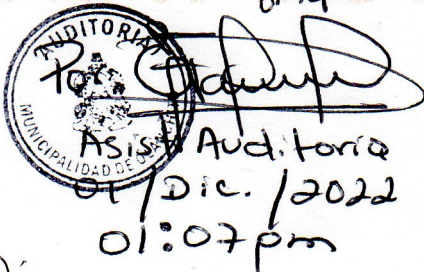 AUDITORIA
MUNICIPALIDAD DE
Por
Asist Auditoria
01/Dic./2022
01:07pm